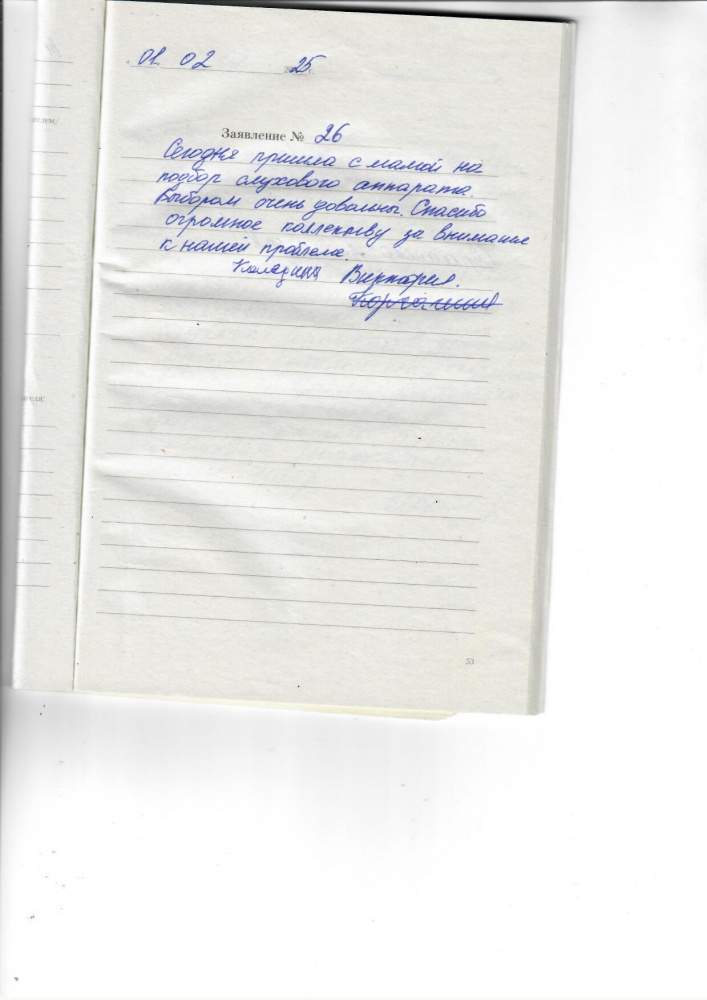 01. 02 25
Заявление № 26
Сегодня пришла с мамой на
подбор слухового аппарата.
Выбором очень довольны. Спасибо
огромное коллективу за внимание
к нашей проблеме.
Виктория.
53